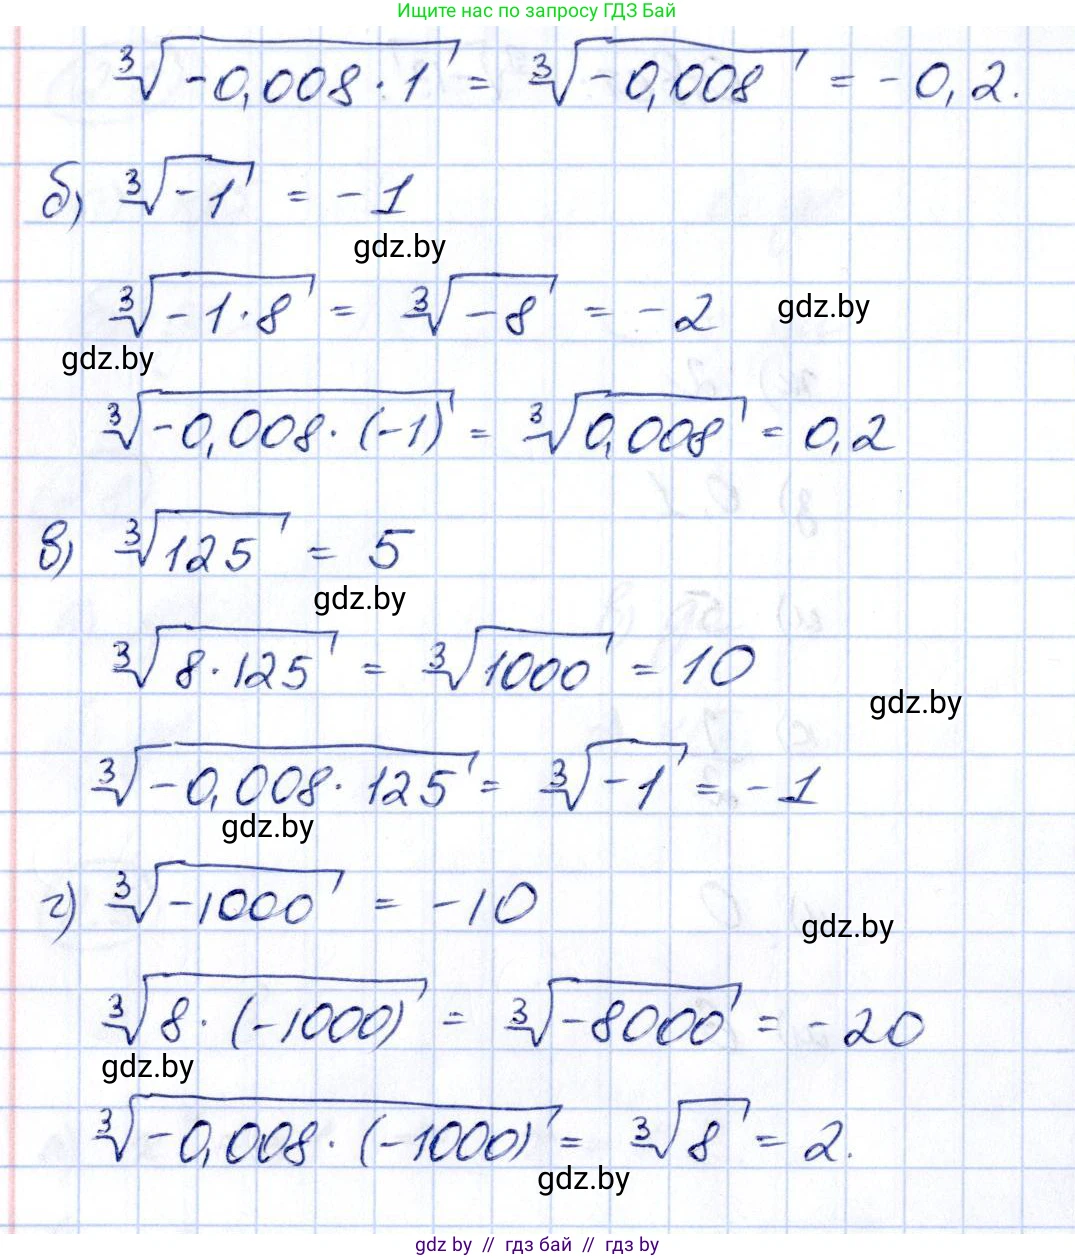 Ищите нас по запросу ГДЗ Бай
∛(-0,008 · 1) = ∛(-0,008) = -0,2.
б) ∛(-1) = -1
gdz.by
∛(-1 · 8) = ∛(-8) = -2
gdz.by
gdz.by
∛(-0,008 · (-1)) = ∛(0,008) = 0,2
в) ∛(125) = 5
gdz.by
∛(8 · 125) = ∛(1000) = 10
gdz.by
∛(-0,008 · 125) = ∛(-1) = -1
gdz.by
г) ∛(-1000) = -10
gdz.by
∛(8 · (-1000)) = ∛(-8000) = -20
gdz.by
∛(-0,008 · (-1000)) = ∛(8) = 2.
gdz.by
gdz by // гдз бай // гдз by